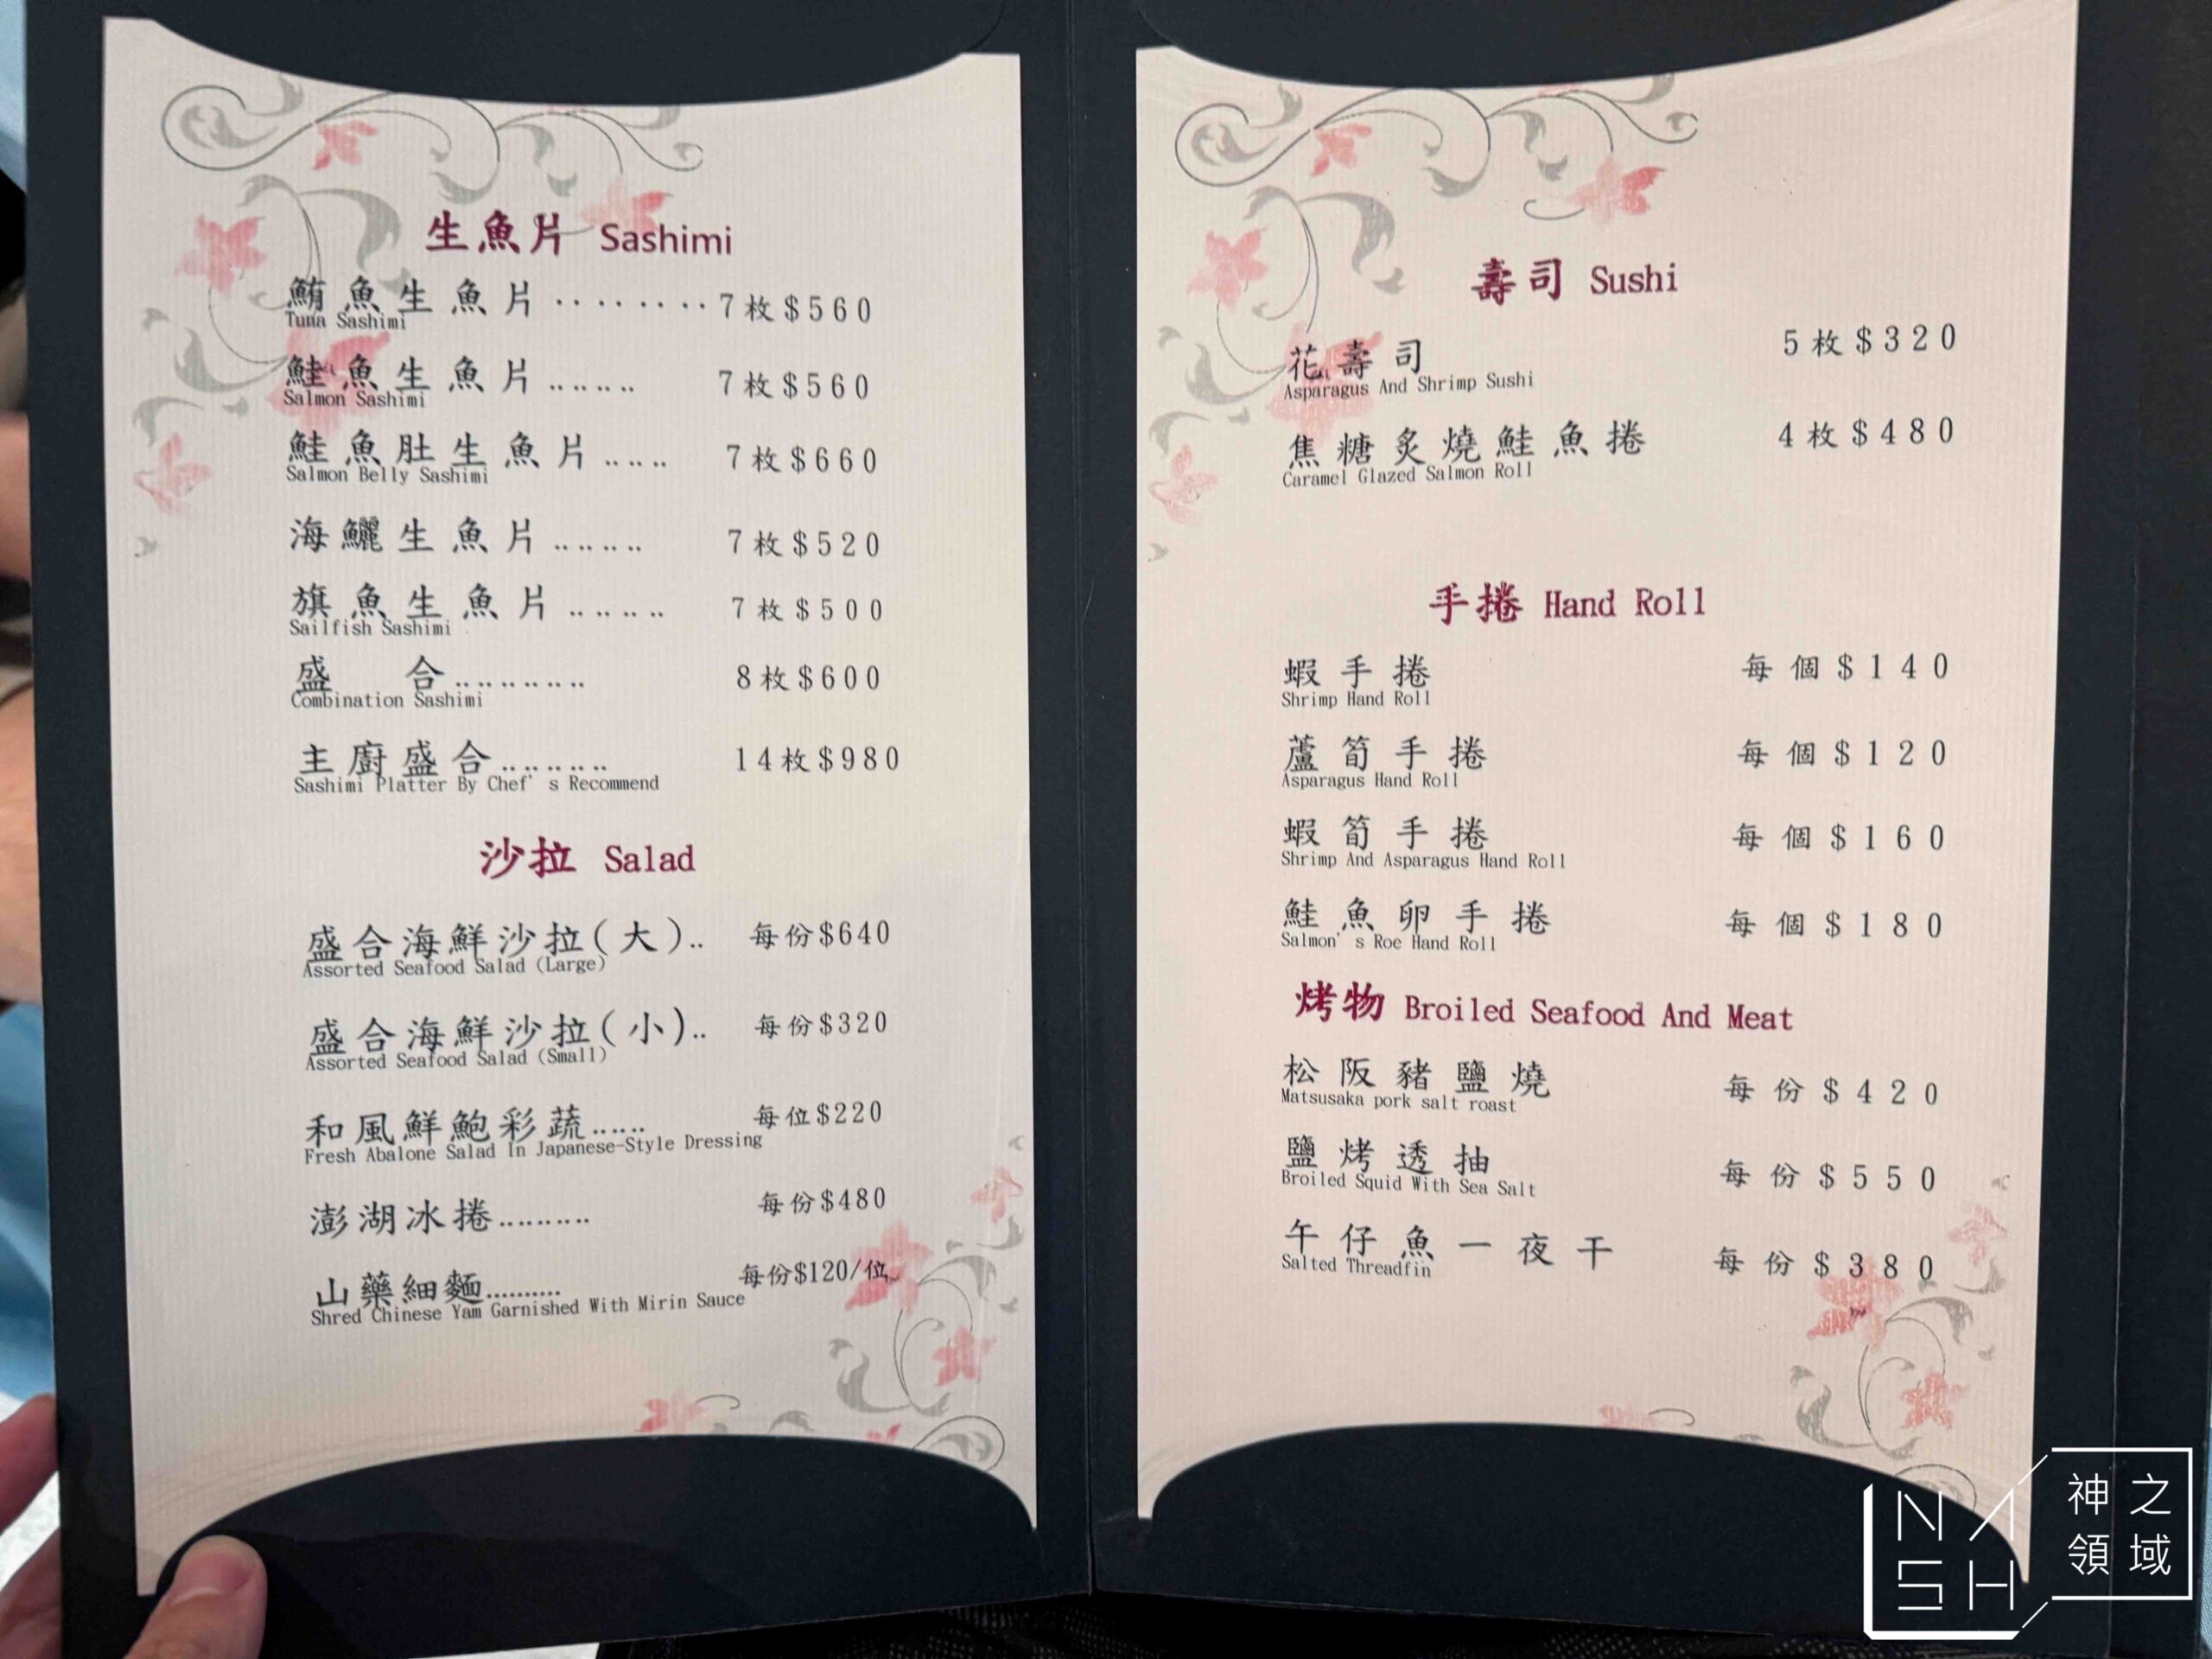 生魚片 Sashimi
鮪魚生魚片‧‧‧‧‧‧‧‧7枚$560
Tuna Sashimi
鮭魚生魚片‥‥‥ 7枚$560
Salmon Sashimi
鮭魚肚生魚片‥‥ 7枚$660
Salmon Belly Sashimi
海鱺生魚片‥‥‥ 7枚$520
旗魚生魚片‥‥‥ 7枚$500
Sailfish Sashimi
盛 合‥‥‥‥ 8枚$600
Combination Sashimi
主廚盛合‥‥‥‥ 14枚$980
Sashimi Platter By Chef's Recommend
沙拉 Salad
盛合海鮮沙拉(大)‥ 每份$640
Assorted Seafood Salad (Large)
盛合海鮮沙拉(小)‥ 每份$320
Assorted Seafood Salad (Small)
和風鮮鮑彩蔬‥‥‥ 每位$220
Fresh Abalone Salad In Japanese-Style Dressing
澎湖冰捲‥‥‥‥ 每份$480
山藥細麵‥‥‥‥‥ 每份$120/位
Shred Chinese Yam Garnished With Mirin Sauce
壽司 Sushi
花壽司 5枚$320
Asparagus And Shrimp Sushi
焦糖炙燒鮭魚捲 4枚$480
Caramel Glazed Salmon Roll
手捲 Hand Roll
蝦手捲 每個$140
Shrimp Hand Roll
蘆筍手捲 每個$120
Asparagus Hand Roll
蝦筍手捲 每個$160
Shrimp And Asparagus Hand Roll
鮭魚卵手捲 每個$180
Salmon's Roe Hand Roll
烤物 Broiled Seafood And Meat
松阪豬鹽燒 每份$420
Matsusaka pork salt roast
鹽烤透抽 每份$550
Broiled Squid With Sea Salt
午仔魚一夜干 每份$380
Salted Threadfin
NASH
神之領域